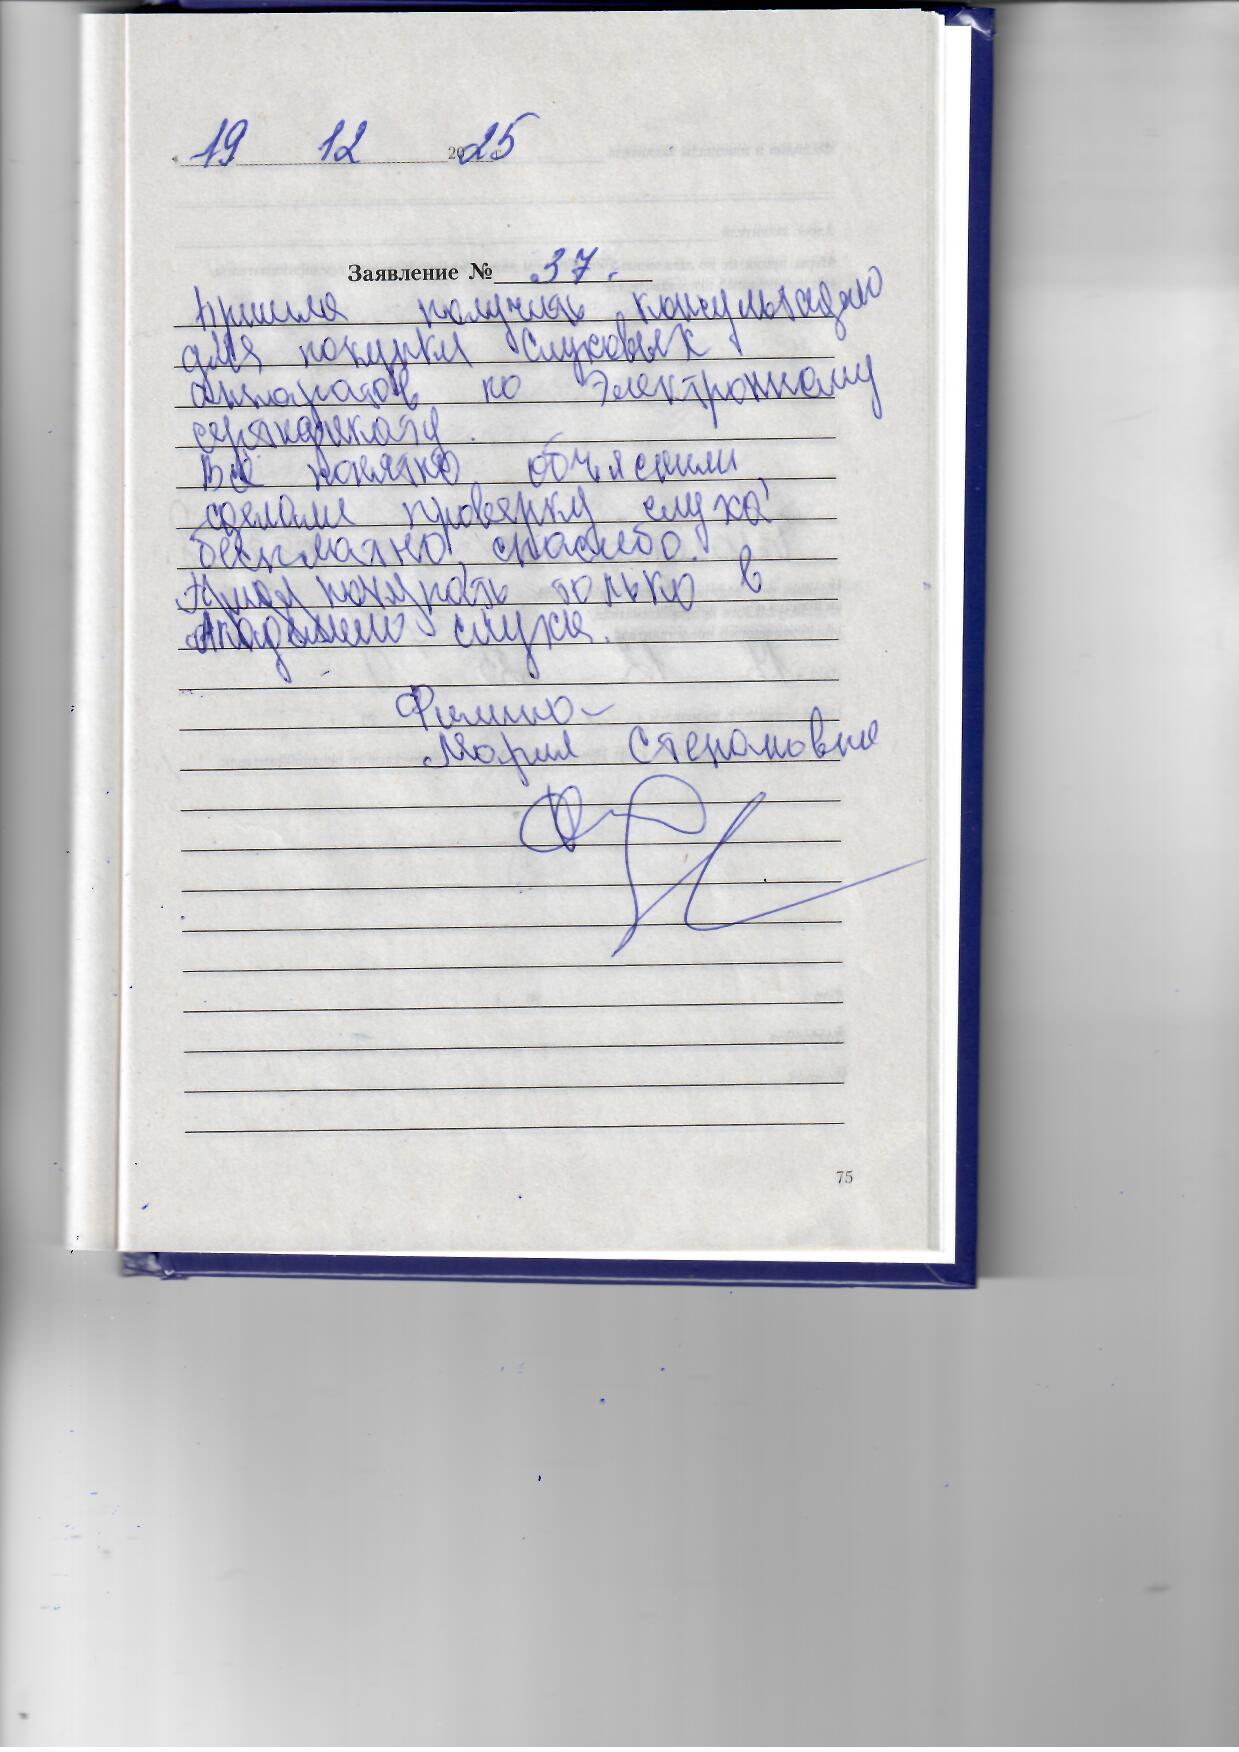 19 12 2025
Заявление № 37.
Пришла получить консультацию
для покупки Слуховых
аппаратов по Электронному
сертификату.
Всё понятно объяснили
сделали проверку слуха
бесплатно, спасибо.
покупать только в
Академию слуха.
Мария Степановна
75